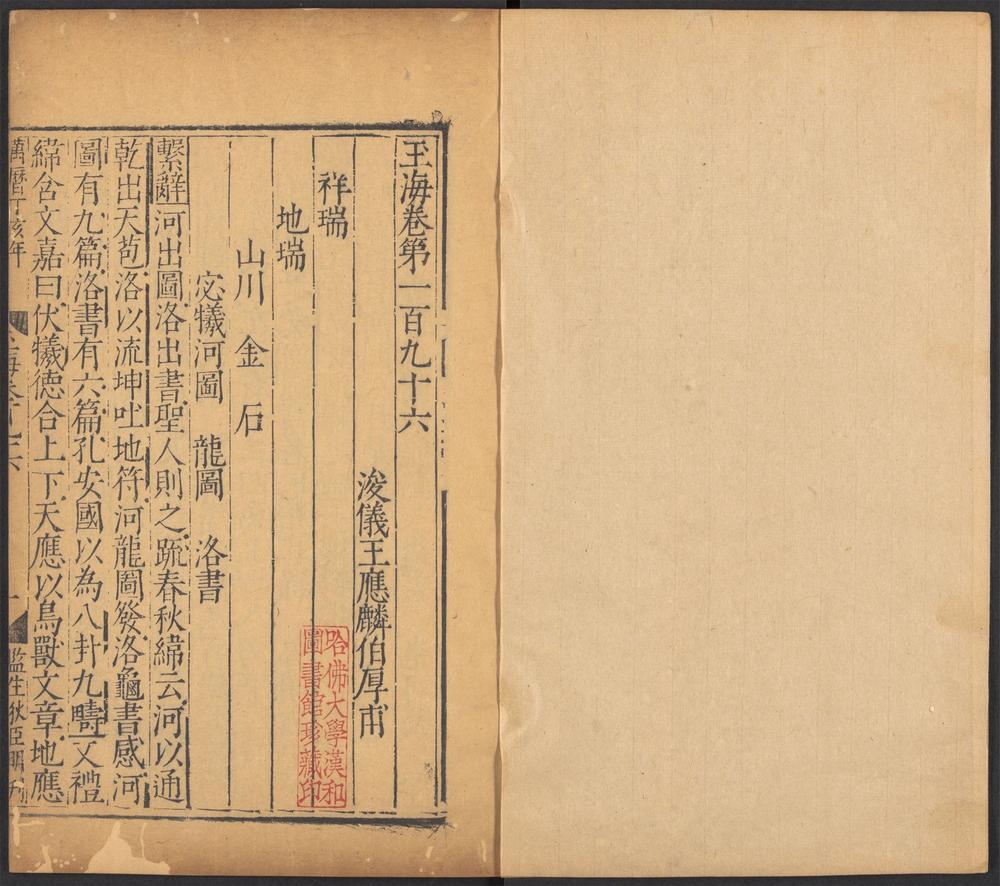 玉海卷第一百九十六
浚儀王應麟伯厚甫
祥瑞
地瑞
山川　金　石
宓犧河圖　龍圖　洛書
繫辭河出圖洛出書聖人則之疏春秋緯云河以通
乾出天苞洛以流坤吐地符河龍圖發洛龜書感河
圖有九篇洛書有六篇孔安國以為八卦九疇又禮
緯含文嘉曰伏犧德合上下天應以鳥獸文章地應
萬曆丁亥年
一
監生狄亞明刊
哈佛大學漢和
圖書館珍藏印